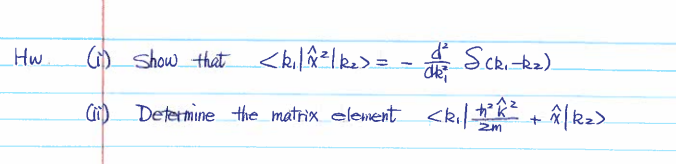 Hw (i) Show that <k₁|x̂²|k₂> = - d²/dk₁² δ(k₁-k₂)
(ii) Determine the matrix element <k₁| ħ²k̂²/2m + x̂|k₂>